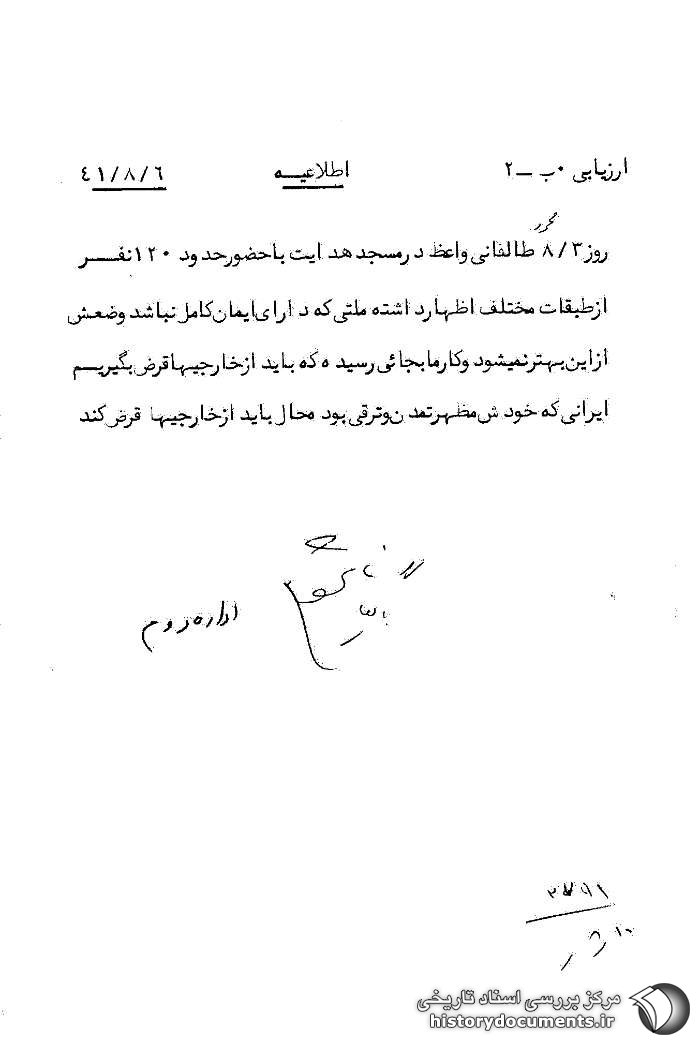 ارزیابی ۰ب ــ ۲ اطلاعیـه ۴۱/۸/۶
محمود
روز ۸/۳ طالقانی واعظ در مسجد هدایت باحضور حدود ۱۲۰ نفــر
از طبقات مختلف اظهار داشته ملتی که دارای ایمان کامل نباشد وضعش
از این بهتر نمیشود و کار ما بجائی رسیده که باید از خارجیها قرض بگیریـم
ایرانی که خودش مظهر تمدن و ترقی بود محال باید از خارجیها قرض کند
اداره دوم
مرکز بررسی اسناد تاریخی
historydocuments.ir